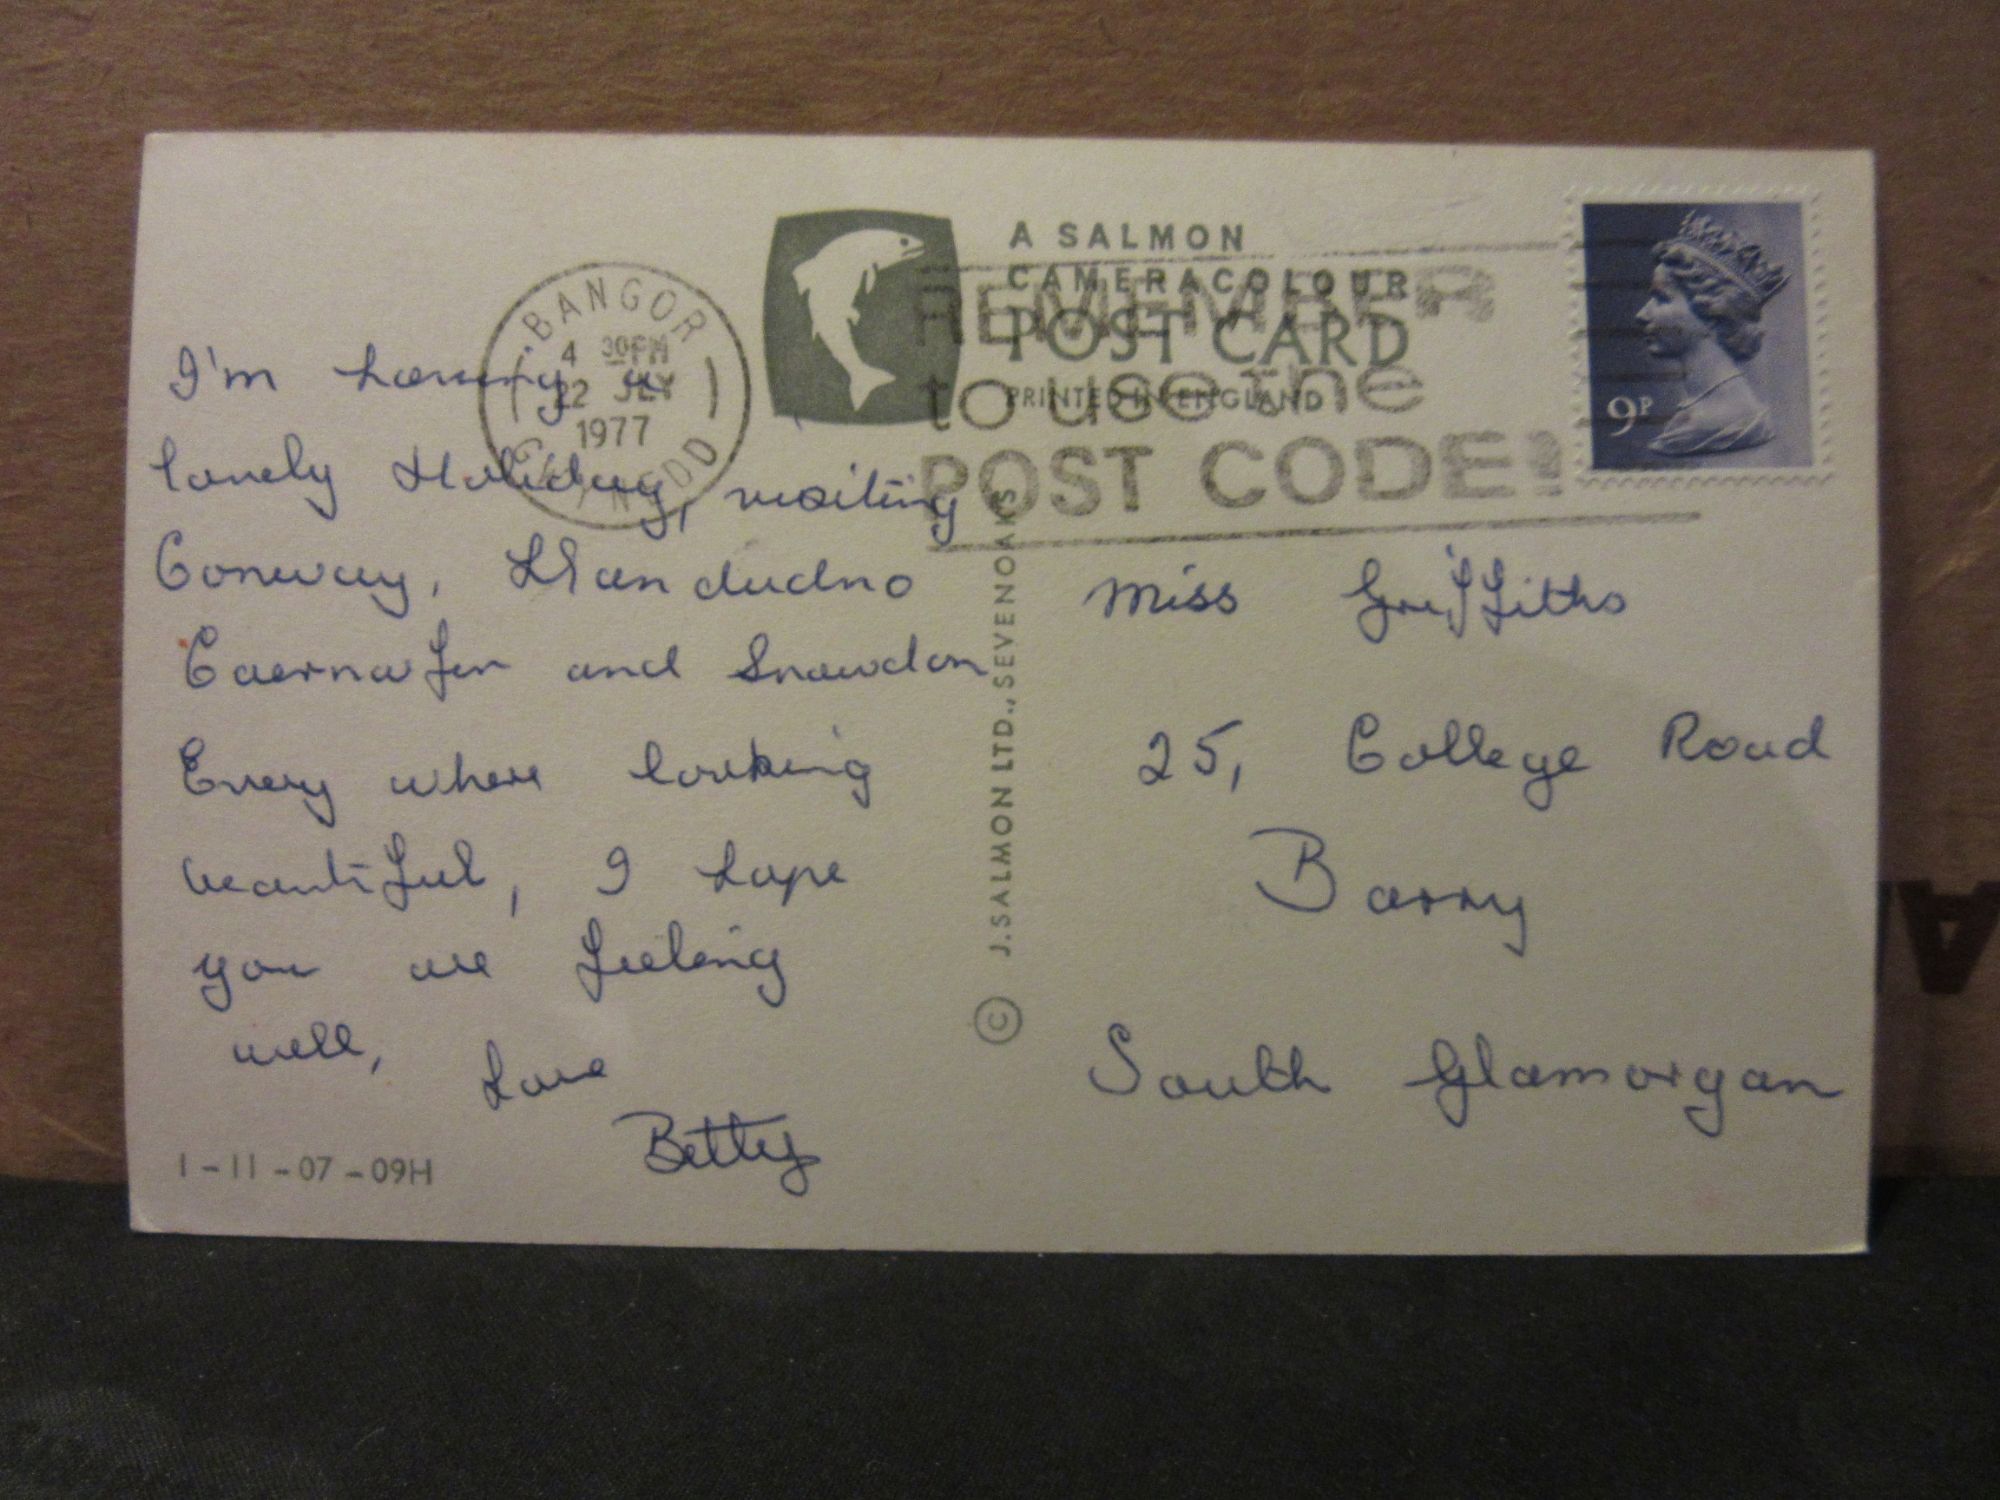 I'm having a
lovely Holiday, visiting
Conway, Llandudno
Caernafon and Snowdon
Every where looking
beautiful, I hope
you are feeling
well,
Love
Betty
1-11-07-09H
BANGOR
4 30PM
22 JLY
1977
GWYNEDD
A SALMON
CAMERACOLOUR
POST CARD
PRINTED IN ENGLAND
REMEMBER
to use the
POST CODE!
9P
© J. SALMON LTD., SEVENOAKS
Miss Griffiths
25, College Road
Barry
South Glamorgan
A